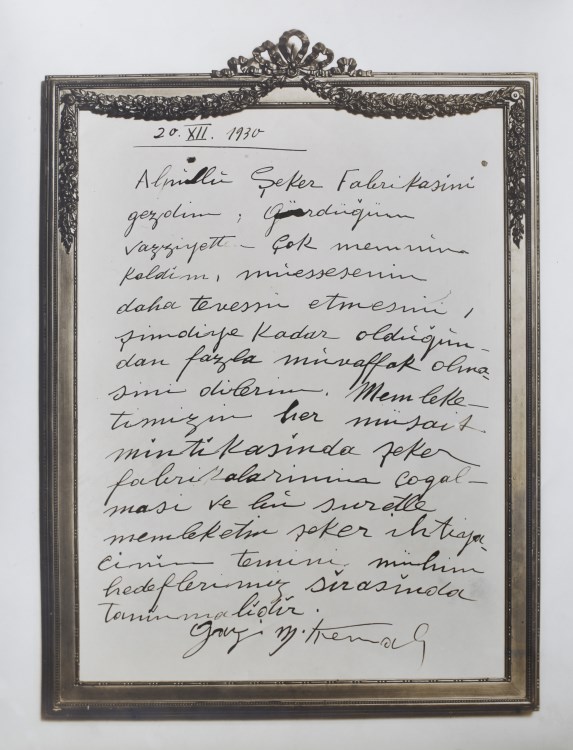 20. XII. 1930
Alpullu Şeker Fabrikasini
gezdim, Gördüğüm
vazziyetten Çok memnun
kaldim, müessesenin
daha tevessü etmesini,
şimdiye kadar olduğun-
dan fazla müvaffak olma-
sini dilerim. Memleke-
timizin her müsait
mintikasinda şeker
fabrikalarinin çogal-
masi ve bu suretle
memleketin şeker ihtiya-
cinin temini, mühim
hedeflerimiz sirasinda
taninmalidir.
Gazi M. Kemal